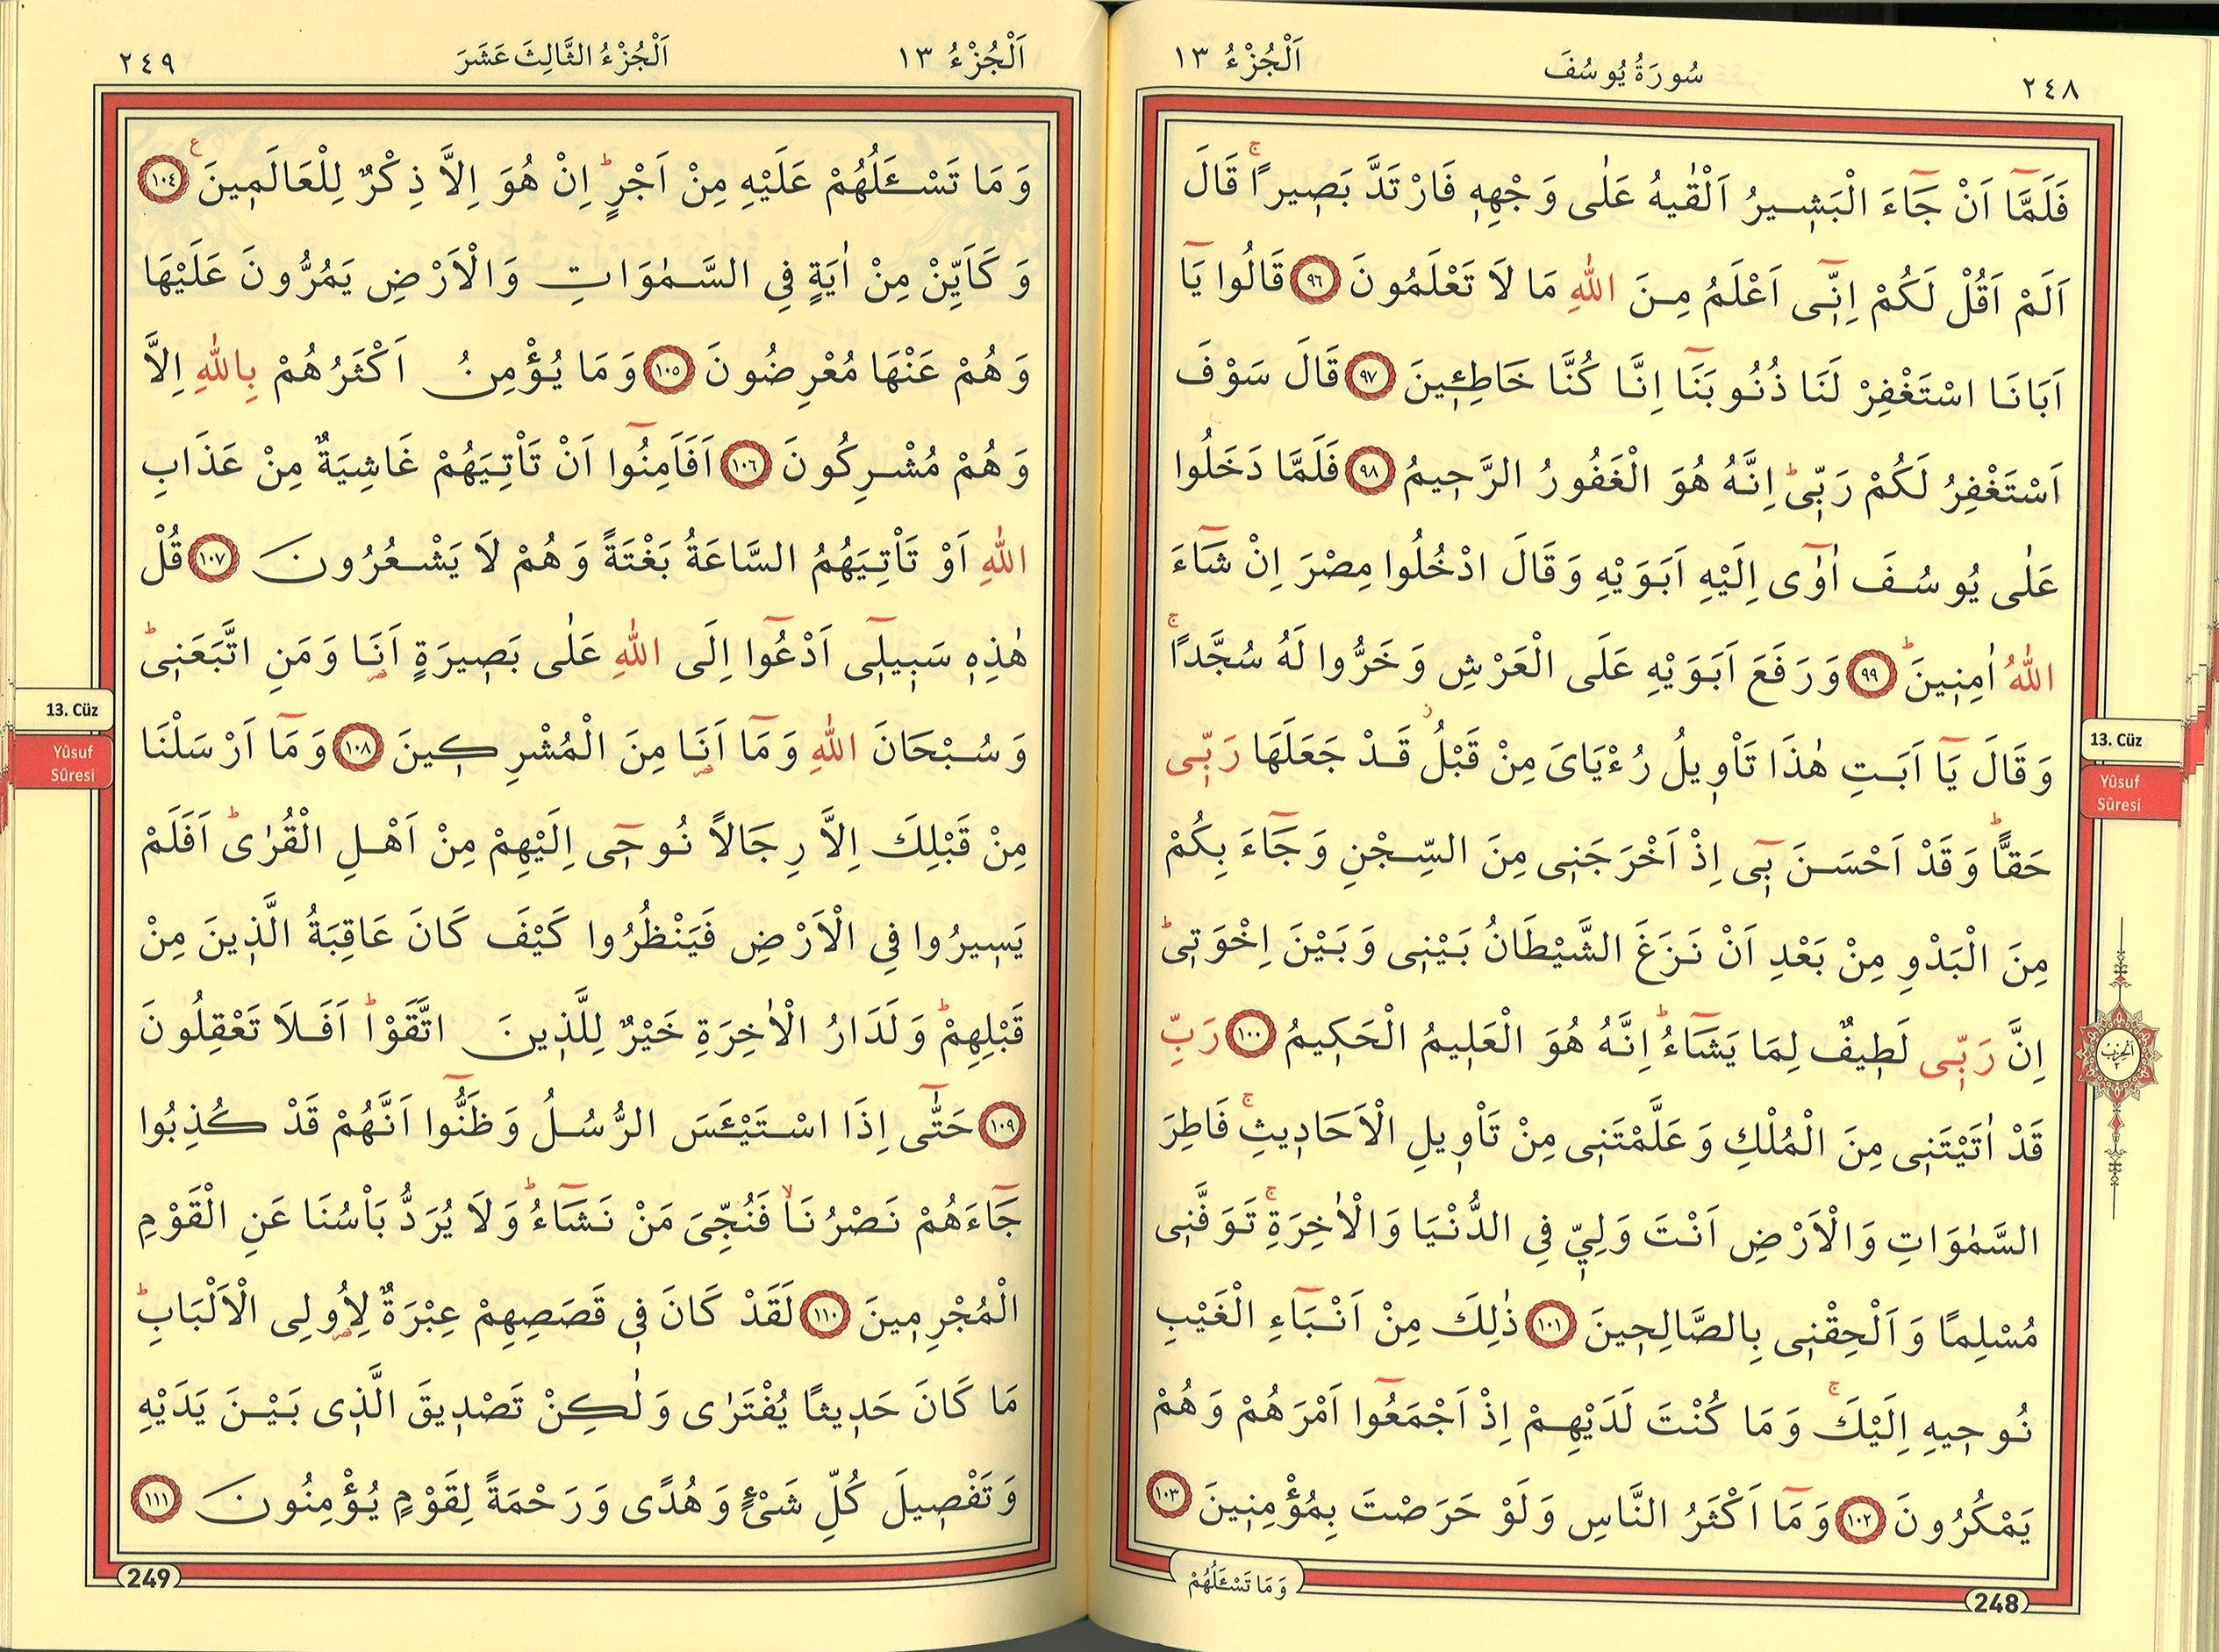 ٢٤٨
سُورَةُ يُوسُفَ
اَلْجُزْءُ ١٣
فَلَمَّٓا اَنْ جَٓاءَ الْبَشٖيرُ اَلْقٰيهُ عَلٰى وَجْهِهٖ فَارْتَدَّ بَصٖيرًاۚ قَالَ
اَلَمْ اَقُلْ لَكُمْ اِنّٖٓى اَعْلَمُ مِنَ اللّٰهِ مَا لَا تَعْلَمُونَ ﴿٩٦﴾ قَالُوا يَٓا
اَبَانَا اسْتَغْفِرْ لَنَا ذُنُوبَنَٓا اِنَّا كُنَّا خَاطِـٖٔينَ ﴿٩٧﴾ قَالَ سَوْفَ
اَسْتَغْفِرُ لَكُمْ رَبّٖىؕ اِنَّهُ هُوَ الْغَفُورُ الرَّحٖيمُ ﴿٩٨﴾ فَلَمَّا دَخَلُوا
عَلٰى يُوسُفَ اٰوٰٓى اِلَيْهِ اَبَوَيْهِ وَقَالَ ادْخُلُوا مِصْرَ اِنْ شَٓاءَ
اللّٰهُ اٰمِنٖينَؕ ﴿٩٩﴾ وَرَفَعَ اَبَوَيْهِ عَلَى الْعَرْشِ وَخَرُّوا لَهُ سُجَّدًاۚ
وَقَالَ يَٓا اَبَتِ هٰذَا تَأْوٖيلُ رُءْيَاىَ مِنْ قَبْلُؗ قَدْ جَعَلَهَا رَبّٖى
حَقًّاؕ وَقَدْ اَحْسَنَ بٖٓى اِذْ اَخْرَجَنٖى مِنَ السِّجْنِ وَجَٓاءَ بِكُمْ
مِنَ الْبَدْوِ مِنْ بَعْدِ اَنْ نَزَغَ الشَّيْطَانُ بَيْنٖى وَبَيْنَ اِخْوَتٖىؕ
اِنَّ رَبّٖى لَطٖيفٌ لِمَا يَشَٓاءُؕ اِنَّهُ هُوَ الْعَلٖيمُ الْحَكٖيمُ ﴿١٠٠﴾ رَبِّ
قَدْ اٰتَيْتَنٖى مِنَ الْمُلْكِ وَعَلَّمْتَنٖى مِنْ تَأْوٖيلِ الْاَحَادٖيثِۚ فَاطِرَ
السَّمٰوَاتِ وَالْاَرْضِ اَنْتَ وَلِيّٖ فِى الدُّنْيَا وَالْاٰخِرَةِۚ تَوَفَّنٖى
مُسْلِمًا وَاَلْحِقْنٖى بِالصَّالِحٖينَ ﴿١٠١﴾ ذٰلِكَ مِنْ اَنْبَٓاءِ الْغَيْبِ
نُوحٖيهِ اِلَيْكَۚ وَمَا كُنْتَ لَدَيْهِمْ اِذْ اَجْمَعُٓوا اَمْرَهُمْ وَهُمْ
يَمْكُرُونَ ﴿١٠٢﴾ وَمَٓا اَكْثَرُ النَّاسِ وَلَوْ حَرَصْتَ بِمُؤْمِنٖينَ ﴿١٠٣﴾
وَمَا تَسْـَٔلُهُمْ
248
13. Cüz
Yûsuf
Sûresi
اَلْحِزْبُ
٢
اَلْجُزْءُ ١٣
اَلْجُزْءُ الثَّالِثَ عَشَرَ
٢٤٩
وَمَا تَسْـَٔلُهُمْ عَلَيْهِ مِنْ اَجْرٍؕ اِنْ هُوَ اِلَّا ذِكْرٌ لِلْعَالَمٖينَ ع ﴿١٠٤﴾
وَكَاَيِّنْ مِنْ اٰيَةٍ فِى السَّمٰوَاتِ وَالْاَرْضِ يَمُرُّونَ عَلَيْهَا
وَهُمْ عَنْهَا مُعْرِضُونَ ﴿١٠٥﴾ وَمَا يُؤْمِنُ اَكْثَرُهُمْ بِاللّٰهِ اِلَّا
وَهُمْ مُشْرِكُونَ ﴿١٠٦﴾ اَفَاَمِنُٓوا اَنْ تَأْتِيَهُمْ غَاشِيَةٌ مِنْ عَذَابِ
اللّٰهِ اَوْ تَأْتِيَهُمُ السَّاعَةُ بَغْتَةً وَهُمْ لَا يَشْعُرُونَ ﴿١٠٧﴾ قُلْ
هٰذِهٖ سَبٖيلٖٓى اَدْعُٓوا اِلَى اللّٰهِ عَلٰى بَصٖيرَةٍ اَنَا وَمَنِ اتَّبَعَنٖىؕ
وَسُبْحَانَ اللّٰهِ وَمَٓا اَنَا مِنَ الْمُشْرِكٖينَ ﴿١٠٨﴾ وَمَٓا اَرْسَلْنَا
مِنْ قَبْلِكَ اِلَّا رِجَالًا نُوحٖٓى اِلَيْهِمْ مِنْ اَهْلِ الْقُرٰىؕ اَفَلَمْ
يَسٖيرُوا فِى الْاَرْضِ فَيَنْظُرُوا كَيْفَ كَانَ عَاقِبَةُ الَّذٖينَ مِنْ
قَبْلِهِمْؕ وَلَدَارُ الْاٰخِرَةِ خَيْرٌ لِلَّذٖينَ اتَّقَوْاؕ اَفَلَا تَعْقِلُونَ
﴿١٠٩﴾ حَتّٰٓى اِذَا اسْتَيْـَٔسَ الرُّسُلُ وَظَنُّٓوا اَنَّهُمْ قَدْ كُذِبُوا
جَٓاءَهُمْ نَصْرُنَاۙ فَنُجِّىَ مَنْ نَشَٓاءُؕ وَلَا يُرَدُّ بَأْسُنَا عَنِ الْقَوْمِ
الْمُجْرِمٖينَ ﴿١١٠﴾ لَقَدْ كَانَ فٖى قَصَصِهِمْ عِبْرَةٌ لِاُولِى الْاَلْبَابِؕ
مَا كَانَ حَدٖيثًا يُفْتَرٰى وَلٰكِنْ تَصْدٖيقَ الَّذٖى بَيْنَ يَدَيْهِ
وَتَفْصٖيلَ كُلِّ شَىْءٍ وَهُدًى وَرَحْمَةً لِقَوْمٍ يُؤْمِنُونَ ﴿١١١﴾
249
13. Cüz
Yûsuf
Sûresi